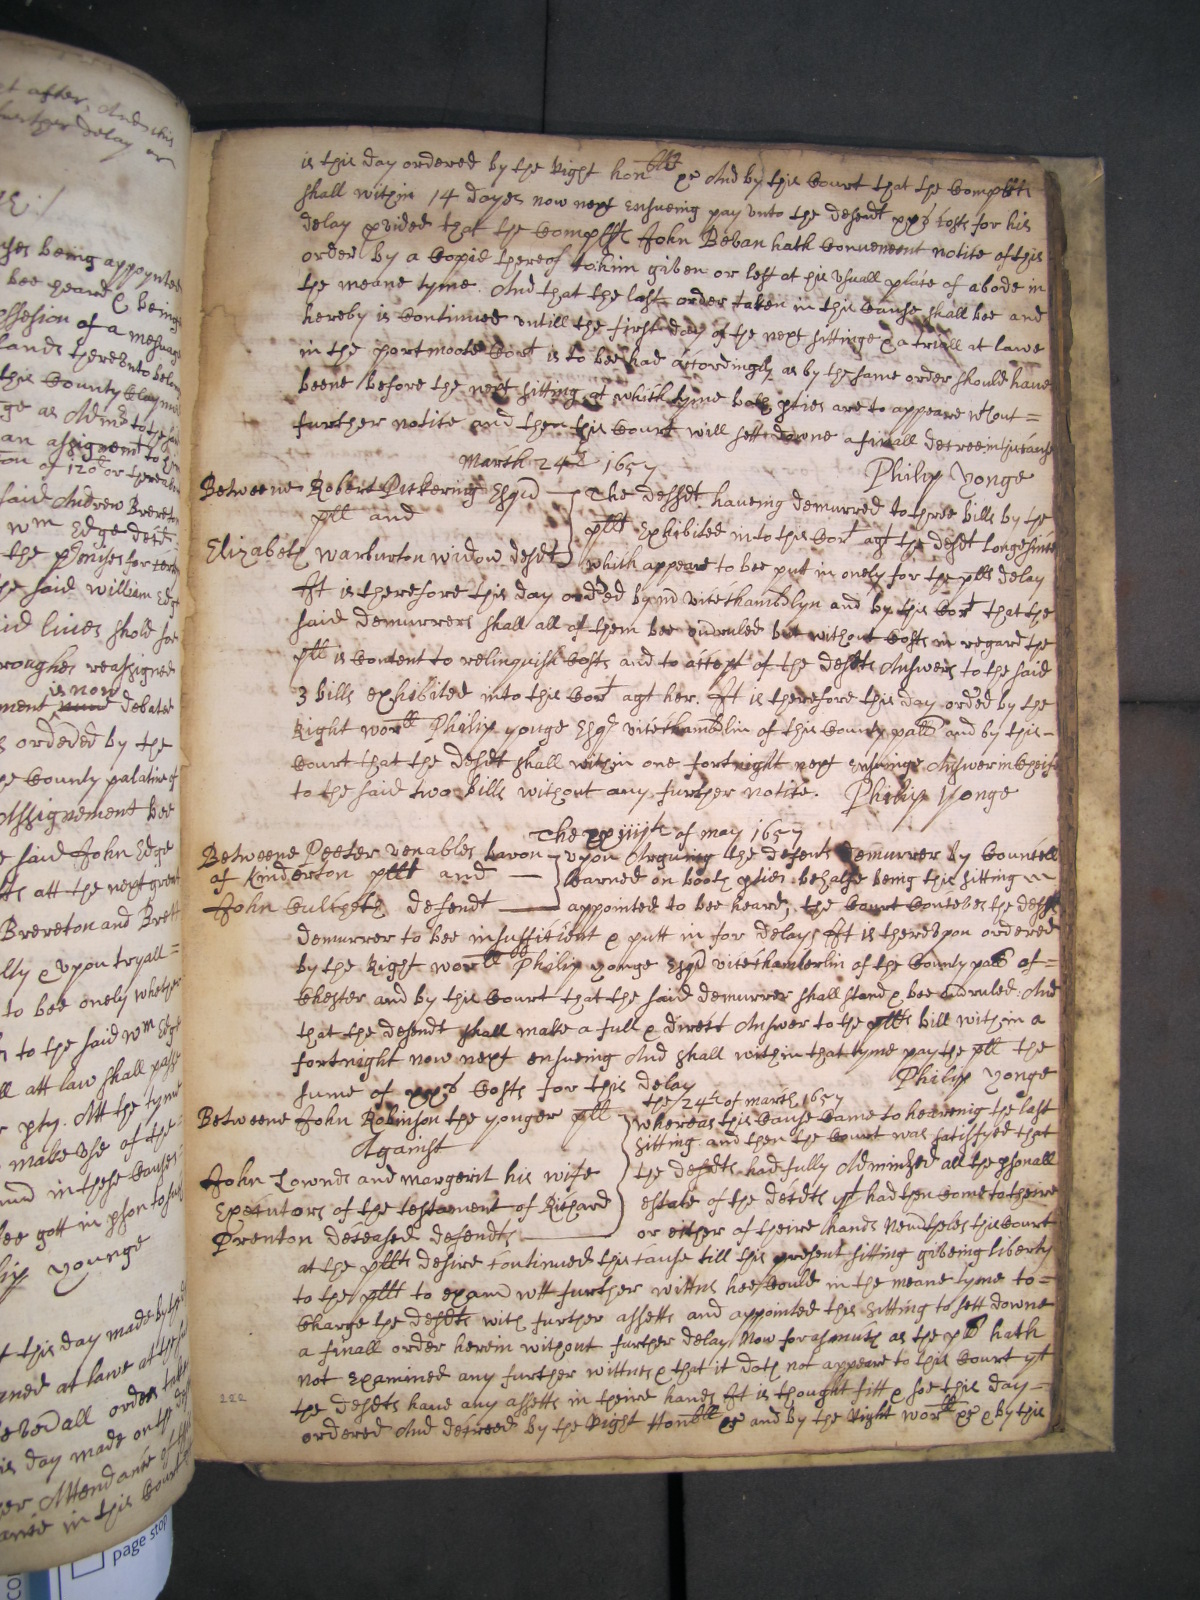 is this day ordered by the Right hon:ble &c And by this Court that the Complts
shall within 14 dayes now next ensueing pay unto the defendt xxs Costs for his
delay pvided that the Complt John Bevan hath Convenient notice of this
order by a Copie thereof to him given or left at his Usuall place of abode in
the meane tyme. And that the last order taken in this Cause shall bee and
hereby is Continued untill the first day of the next sittinge & a triall at lawe
in the portmoote Cort is to bee had accordingly as by the same order should have
beene before the next sitting at which tyme both pties are to appeare wthout =
further notice and then this Court will sett downe a finall decree in this cause
March 24th 1657
Philip Yonge
Betweene Robert Pickering Esqr
plt and
Elizabeth Warburton widow defdt
The defdt haveing demurred to three bills by the
plt Exhibited into this Cort agt the defdt longe since
which appeare to bee put in onely for the plts delay
It is therefore this day ordred by mr vicechambrlyn and by this Cort that the
said demurrers shall all of them bee ovrruled but without Costs in regard the
plt is Content to relinquish Costs and to accept of the defdts Answers to the said
3 bills exhibited into this Cort agt her. It is therefore this day ordred by the
Right worll Philip yonge Esqr vicechambrlin of this County pallt and by this -
Court that the defdt shall within one fortnight next ensuinge Answer in Cheife
to the said two bills without any further notice. Philip Yonge
The xxiiijth of may 1657
Betweene Peeter venables baron
of Kinderton plt and
John defendt
upon Arguing the defents demurrer By Councell
learned on booth pties behalfe being this sitting
appointed to bee heard, the Court Conceives the defdts
demurrer to bee insufficient & putt in for delays It is thereupon ordered
by the Right worll Philip yonge Esqr vicechamberlin of the County pallt of =
Chester and by this Court that the said demurrer shall stand & bee ovrruled. And
that the defendt shall make a full & direct Answer to the plts bill within a
fortnight now next ensueing And shall within that tyme pay the plt the
sume of xxs Costs for this delay
Philip Yonge
the 24th of march 1657
Betweene John Robinson the yonger plt
Against
John Lownds and margerit his wife
Executors of the testament of Richard
Prenton deceased defendts
whereas this Cause Came to hearenig the last
sitting and then the Court was satisfyed that
the defdts had fully Adminstred all the psonall
estate of the decdts yt had then Come to theire
or either of theire hands Neverthelesse this Court
at the plts desire Continued this Cause till this present sitting giveing liberty
to the plt to examn wt further wittns hee Could in the meane tyme to =
Charge the defdts with further assetts and appointed this sitting to sett downe
a finall order herein without further delay Now forasmuch as the plt hath
not Examined any further wittnes & that it doth not appeare to this Court yt
the defdts have any assetts in theire hands It is thought fitt & soe this day =
ordered And decreed by the Right Honble &c and by the Right worll &c & by this
222
t after, And this
further delay or
being appoynted
bee heard & being
ossession of a mesuage
lands thereunto belong
this County Clayme
an assigment to
or thereab
said Andrew Brereton
wm Edge decd
the pmises for
the said William Edge
reassigned
is now
ment debated
s ordered by the
he County palatine of
Assignement bee
said John Edge
att the next great
Brereton and Brett
lly & upon tryall =
to bee onely whether
to the said wm Edge
ll att law shall passe
pty. Att the tyme
make Use of the
in these Causes
gott in
yonge
this day made by
at lawe at the
all orders
day made on the
Attendance of
in this Court
page stop
CO